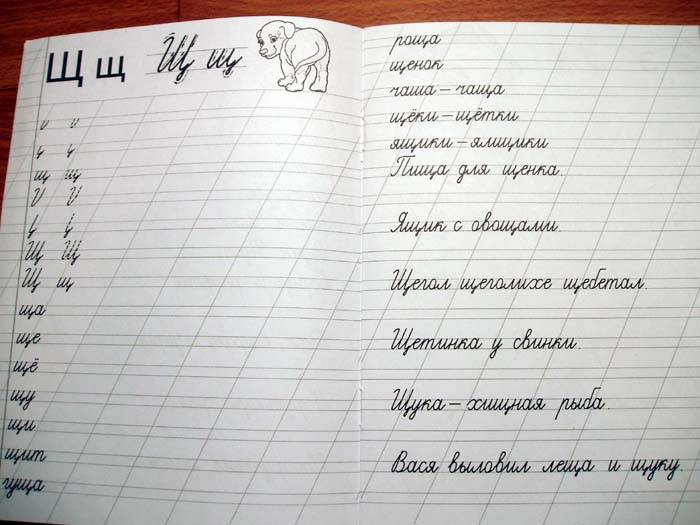 Щ щ Щ щ
щ щ
Щ Щ
Щ щ
ща
ще
щё
щу
щи
щит
гуща
роща
щенок
чаша – чаща
щёки – щётки
ящики – ямщики
Пища для щенка.
Ящик с овощами.
Щегол щеголихе щебетал.
Щетинка у свинки.
Щука – хищная рыба.
Вася выловил леща и щуку.